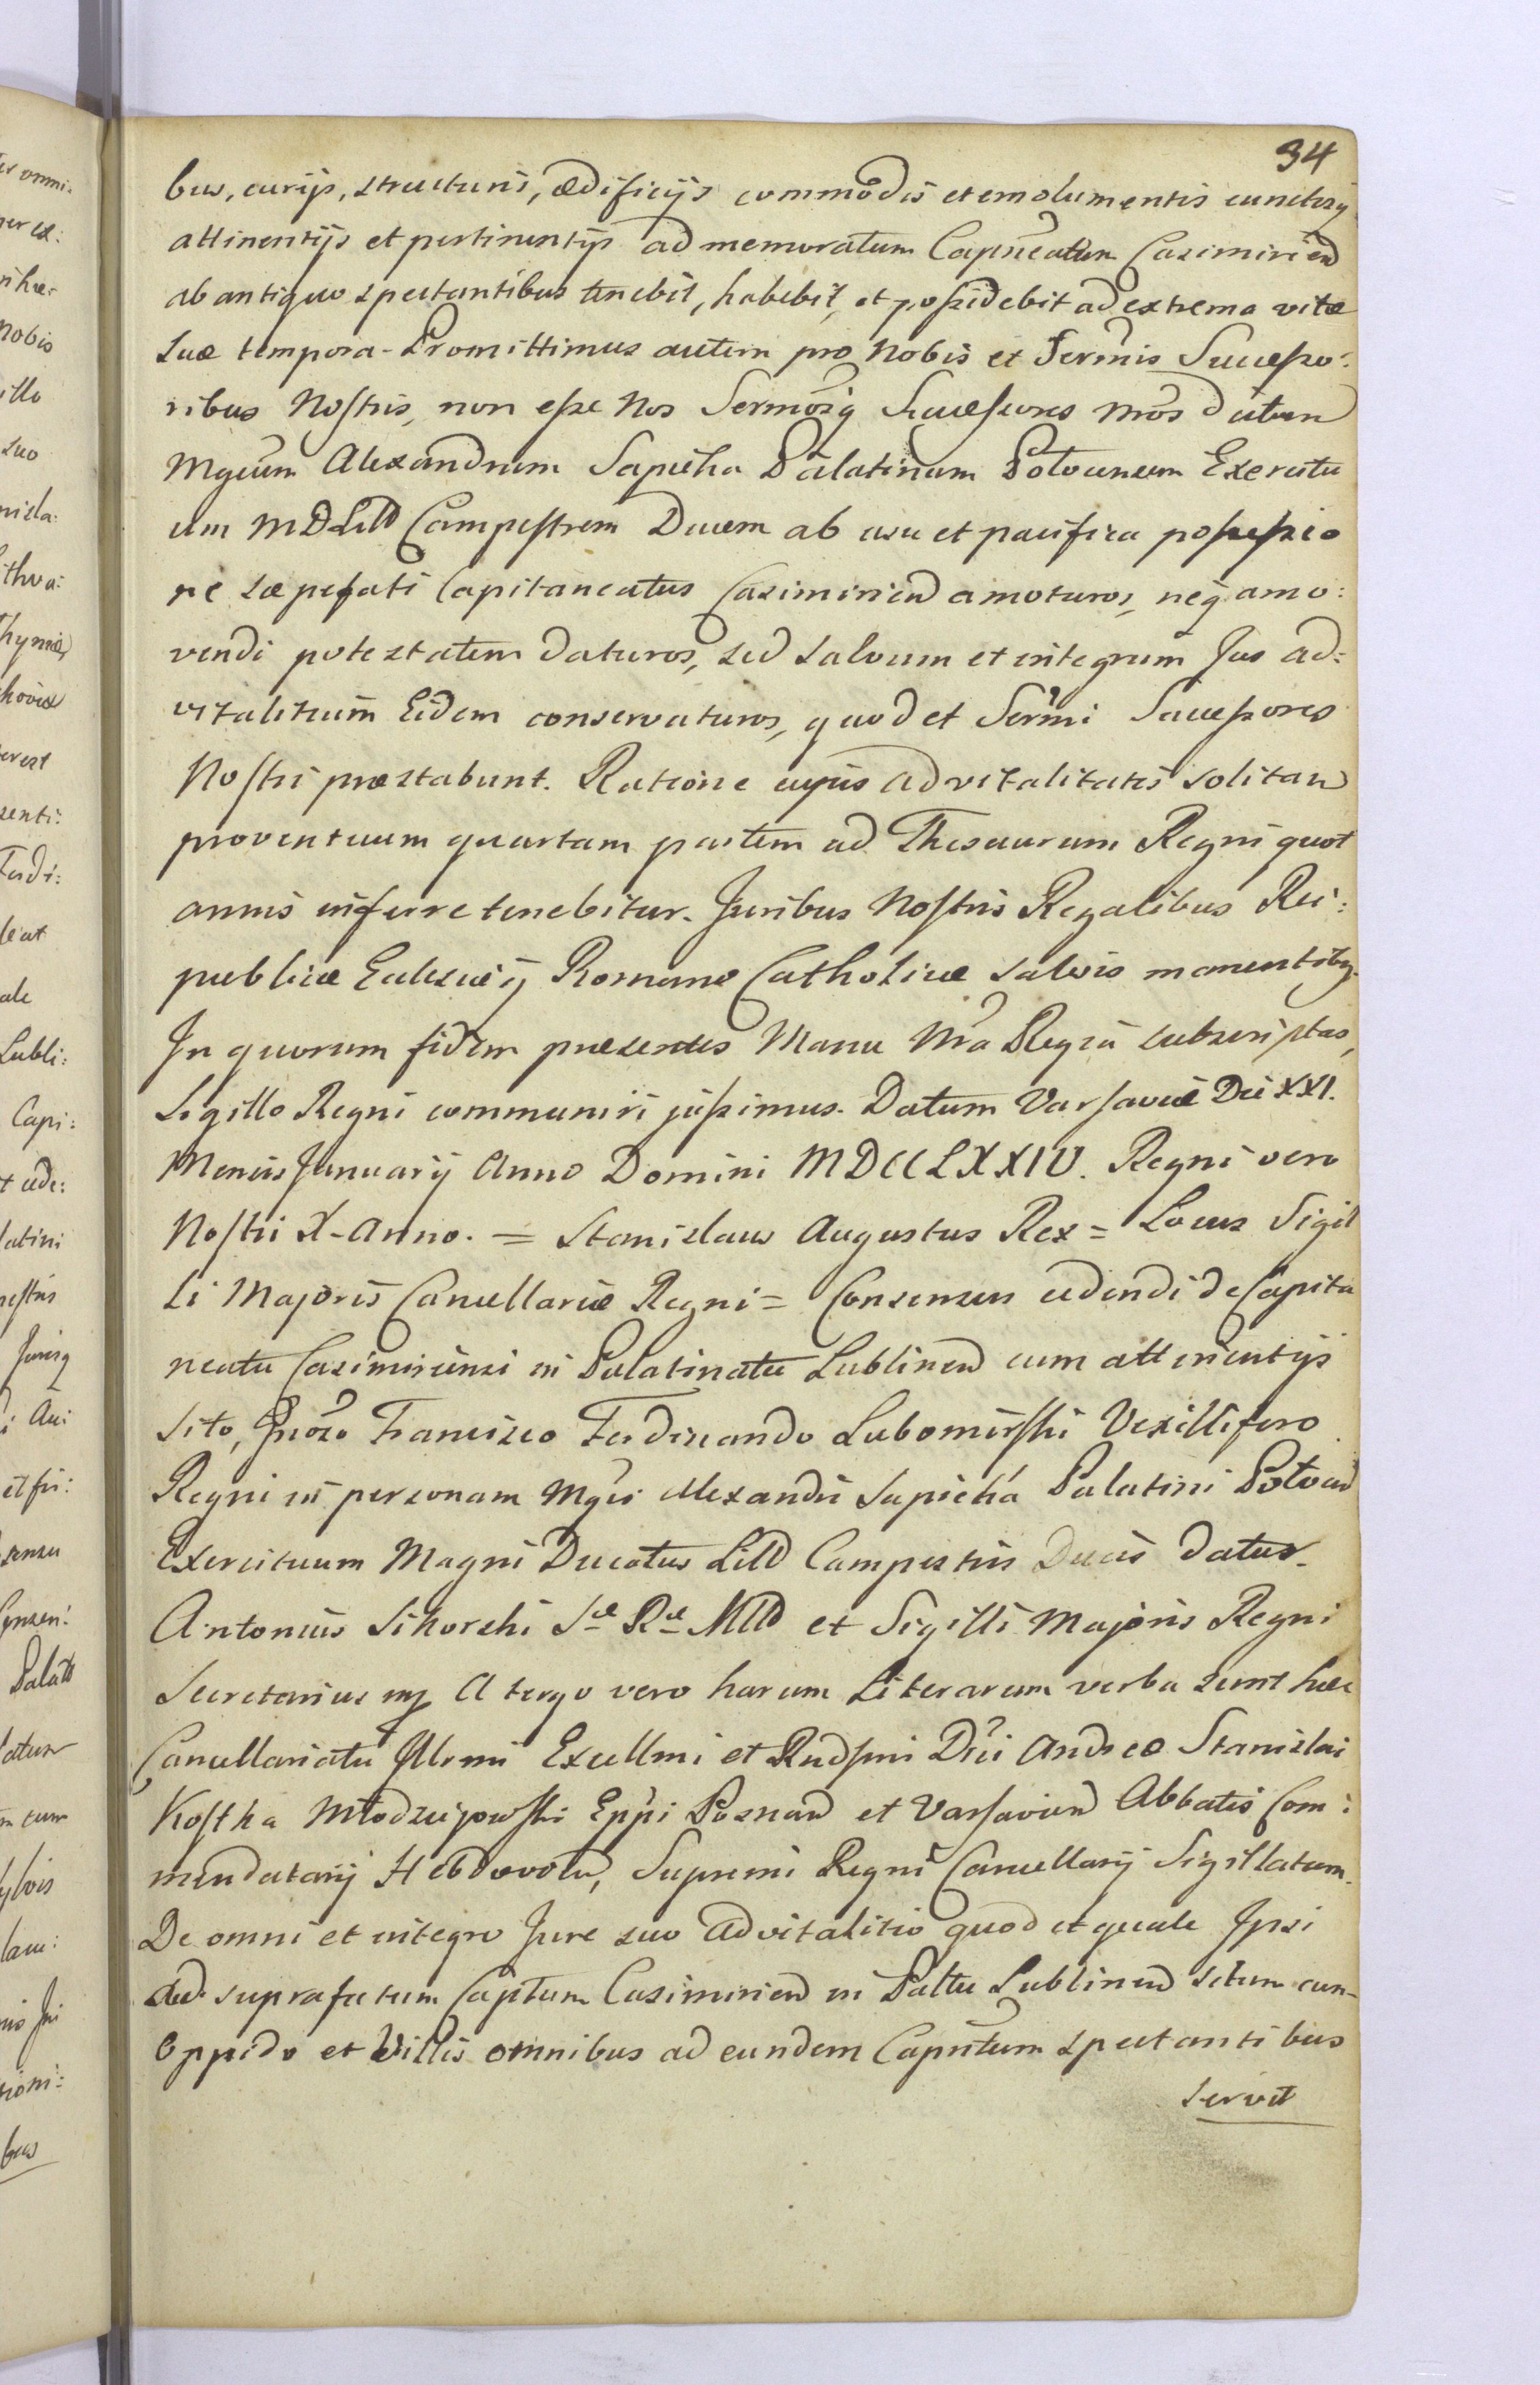 34
bus, curijs, structuris, ædificijs commodis et emolumentis cunctisq
attinentijs et pertinentijs ad memoratum Capneatum Casimirien
ab antiquo spectantibus tenebit, habebit, et possidebit ad extrema vitæ
suæ tempora. Promittimus autem pro Nobis et Sermis Successo:
ribus Nostris, non esse Nos Sermosq Successores nros dictum
Mgcum Alexandrum Sapieha Palatinum Polocensem Exercitu
um MDLitt Campestrem Ducem ab usu et pacifica possessio
ne sæpefati Capitaneatus Casimirien amoturos, neq amo:
vendi potestatem daturos, sed salvum et integrum Jus ad=
vitalitium Eidem conservaturos, quod et Sermi Successores
Nostri præstabunt. Ratione cujus advitalitatis solitam
proventuum quartam partem ad Thesaurum Regni quot
annis inferre tenebitur. Juribus Nostris Regalibus Rei:
publicæ Ecclesiæq Romano Catholicæ salvis manentibq
In quorum fidem præsentes Manu Nra Regia subscriptas,
Sigillo Regni communiri jussimus. Datum Varsaviæ Die XXI.
Mensis Januarij Anno Domini MDCCLXXIV. Regni vero
Nostri X. Anno. = Stanislaus Augustus Rex = Locus Sigil
li Majoris Cancellariæ Regni = Consensus cedendi de Capita
neatu Casimiriensi in Palatinatu Lublinen cum attinentijs
sito, Gnoso Francisco Ferdinando Lubomirski Vexillifero
Regni in personam Mgci Alexandri Sapieha Palatini Polocen
Exercituum Magni Ducatus Litt Campestris Ducis datur.
Antonius Sikorski Sæ Ræ Mtt et Sigilli Majoris Regni
Secretarius mp A tergo vero harum Literarum verba sunt hæc
Cancellariatu Illrmi Excellmi et Rndsmi Dni Andreæ Stanislai
Kostka Młodziejowski Eppi Posnan et Varsavien Abbatis Com:
mendatarij Hebdovien, Supremi Regni Cancellarij Sigillatum.
De omni et integro Jure suo advitalitio quod et quale Ipsi
ad suprafatum Captum Casimirien in Paltu Lublinen situm cum
Oppido et Villis omnibus ad eundem Capntum spectantibus
servit